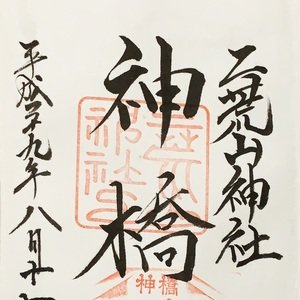 二荒山神社
神橋
平成二十九年八月十
二荒山神社
神橋